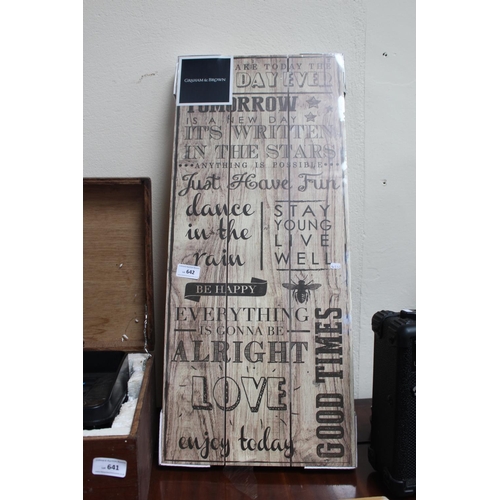 GRAHAM & BROWN
AKE TODAY THE
DAY EVER
TOMORROW
IS A NEW DAY
IT'S WRITTEN
IN THE STARS
ANYTHING IS POSSIBLE
Just Have Fun
dance
in the
rain
STAY
YOUNG
LIVE
WELL
642
BE HAPPY
EVERYTHING
IS GONNA BE
ALRIGHT
LOVE
enjoy today
GOOD TIMES
641